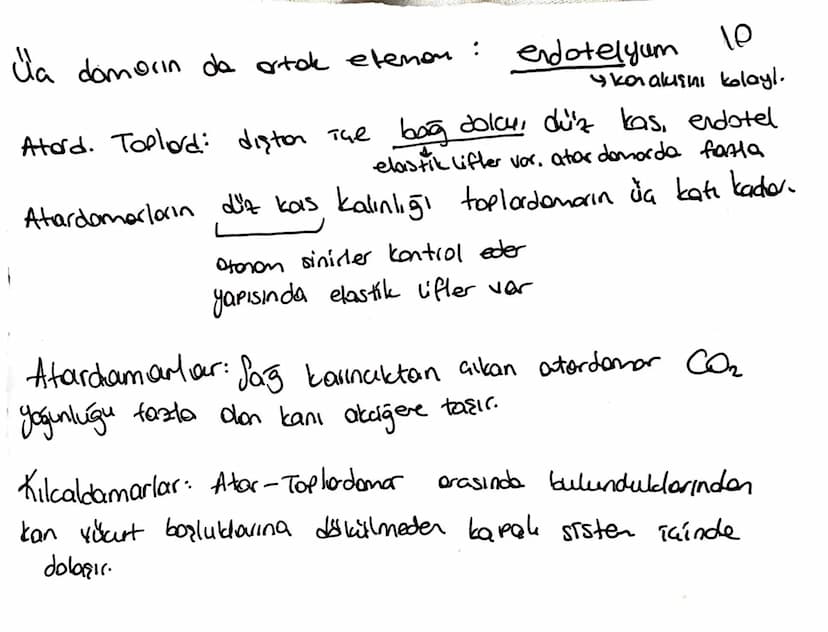 Üç damarın da ortak elemanı : endotelyum
↳ kan akışını kolayl.
Atard. Toplard: dıştan içe bağ doku, düz kas, endotel
elastik lifler var. atar damarda fazla
Atardamarların düz kas kalınlığı toplardamarın üç katı kadar.
otonom sinirler kontrol eder
yapısında elastik lifler var
Atardamarlar: Sağ karıncıktan çıkan atardamar CO₂
yoğunluğu fazla olan kanı akciğere taşır.
Kılcaldamarlar: Atar-Toplardamar arasında bulunduklarından
kan vücut boşluklarına dökülmeden kapalı sistem içinde
dolaşır.